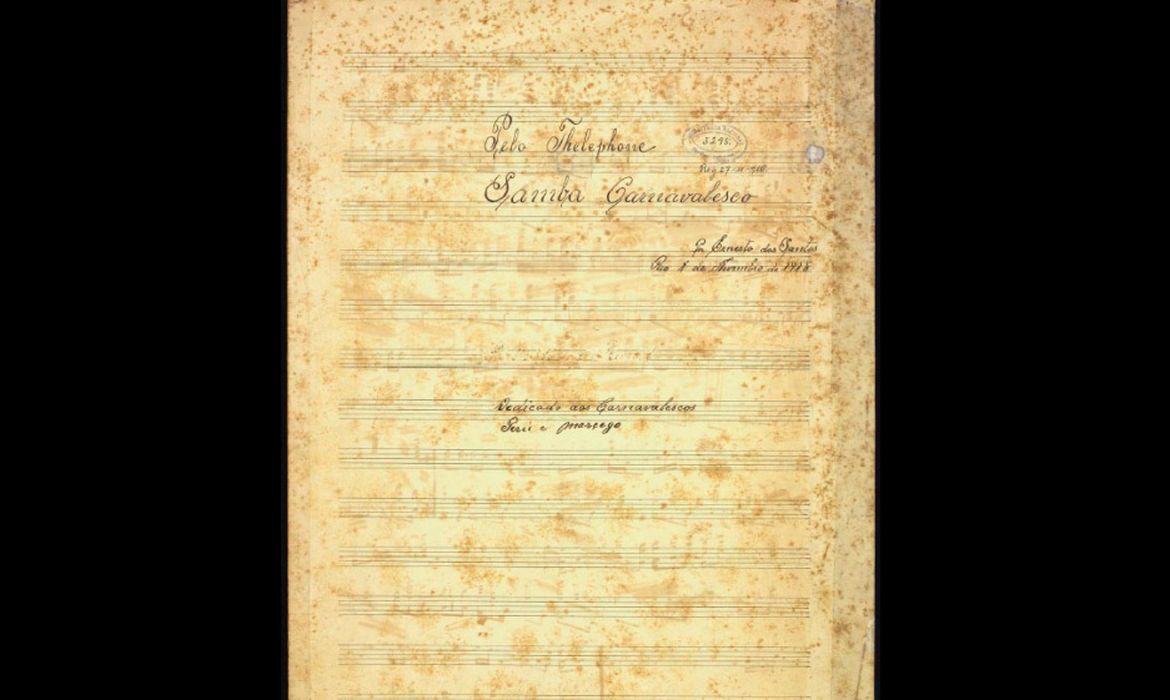 Pelo Thelephone
3295.
Reg 27-11-916
Samba Carnavalesco
Por Ernesto dos Santos
Rio 1 de Novembro de 1916
Dedicado aos Carnavalescos
Perú e Morcego